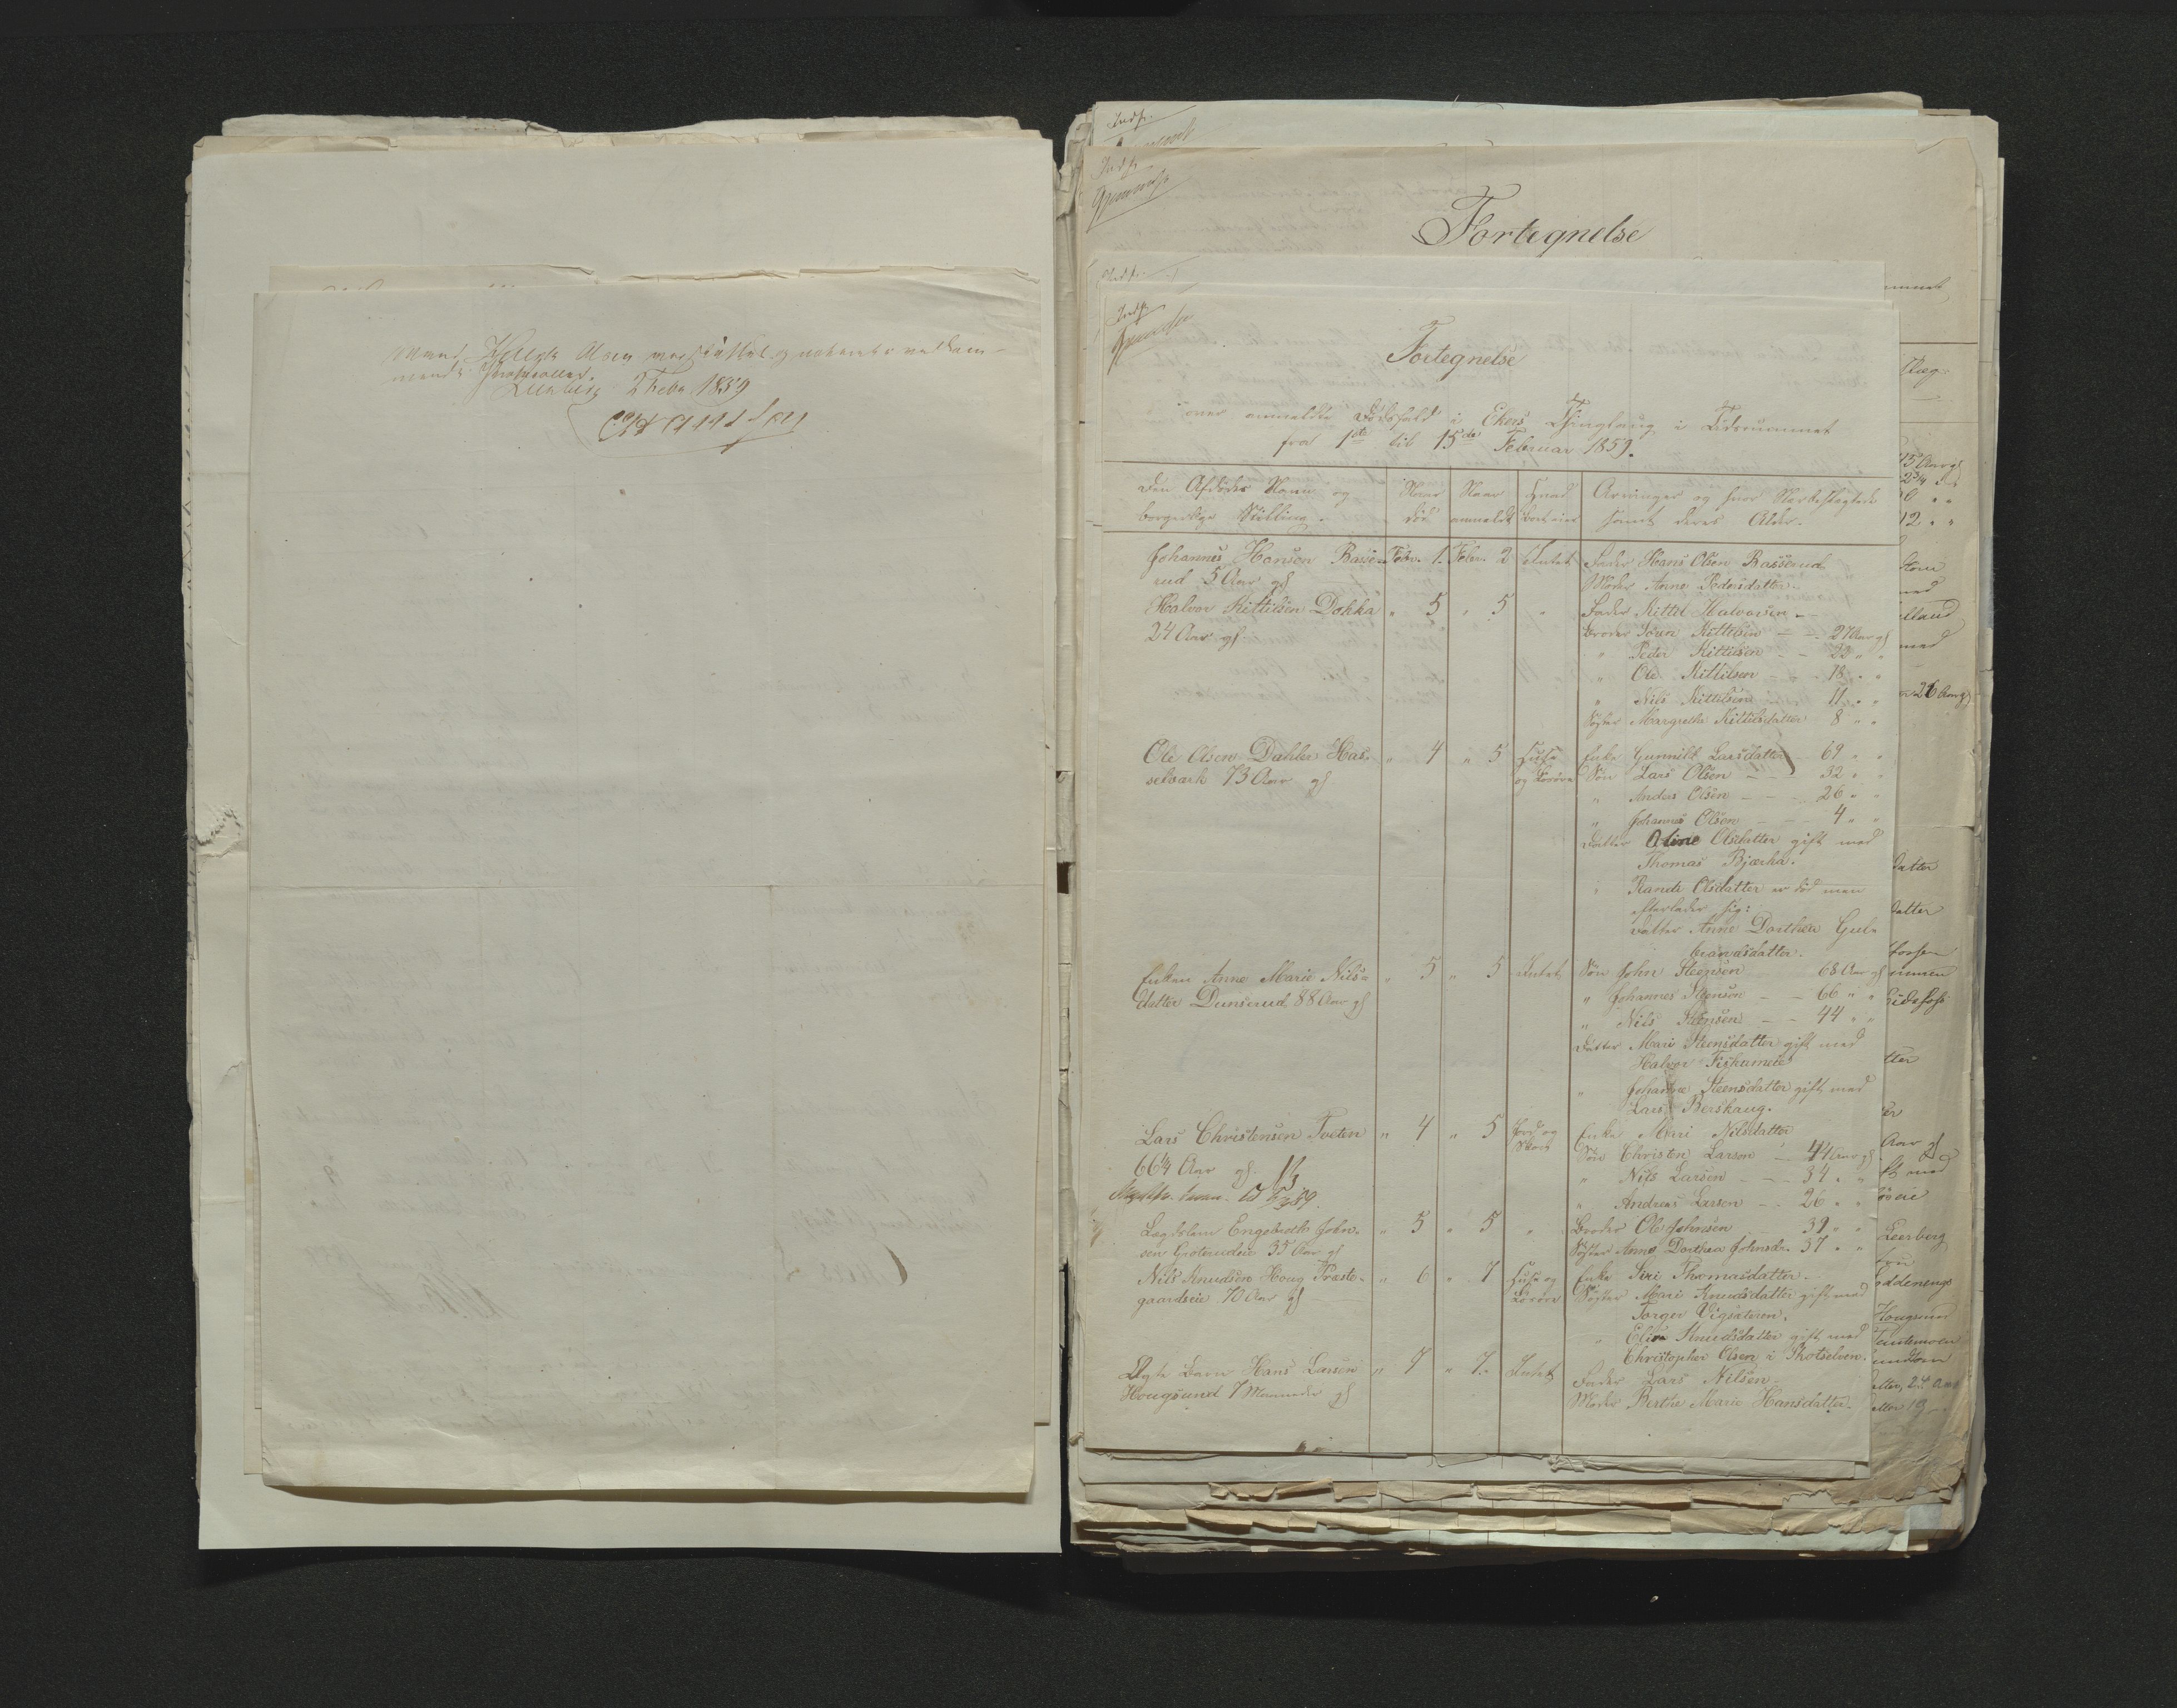 Helge Olsen
2 Febr. 1859
Indf.
Indf.
Fortegnelse
Indf.
Indf.
Fortegnelse
over anmeldte Dødsfald i Ekers Thinglaug i Tidsrummet
fra 1ste til 15de Februar 1859.
Den Afdødes Navn og
borgerlige Stilling.
Naar
død
Naar
anmeldt
Hvad
Boet eier
Arvinger og hvor Nærbeslægtede
samt deres Alder.
Johannes Hansen Basse-
rud 5 Aar gl
Febr. 1. Febr. 2 Intet
Fader Hans Olsen Basserud
Moder Anne Pedersdatter.
Halvor Kittilsen Dokka
24 Aar gl.
" 5 " 5 "
Fader Kittil Halvorsen
Broder Iver Kittilsen 27 Aar gl
" Peder Kittilsen 22 " "
" Ole Kittilsen 18 " "
" Nils Kittilsen 11 " "
Søster Margrethe Kittilsdatter 8 " "
Ole Olsen Dahler Has-
selbæk 73 Aar gl
" 4 " 5 Huse
og Løsøre
Enke Gunnild Larsdatter 69 " "
Søn Lars Olsen 32 " "
" Anders Olsen 26 " "
" Johannes Olsen 4 " "
Datter Oline Olsdatter gift med
Thomas Bjerka.
" Rande Olsdatter er død men
efterlader sig:
Datter Anne Dorthea Gul-
brandsdatter.
Enken Anne Marie Nils-
datter Dunserud 88 Aar gl
" 5 " 5 Intet
Søn John Steensen 68 Aar gl
" Johannes Steensen 66 " "
" Nils Steensen 44 " "
Datter Mari Steensdatter gift med
Halvor Fiskumeie
" Johanne Steensdatter gift med
Lars Bershaug.
Lars Christensen Tveten
66 1/4 Aar gl.
" 4 " 5 Jord og
Skov
Enke Mari Nilsdatter
Søn Christen Larsen 44 Aar gl
" Nils Larsen 34 " "
" Andreas Larsen 26 " "
Lægdslem Engebreth John-
sen Groterudeie 35 Aar gl
" 5 " 5 "
Broder Ole Johnsen 39 " "
Søster Anne Dorthea Johnsdr. 37 " "
Nils Knudsen Houg Præste-
gaardseie 70 Aar gl
" 6 " 7 Huse og
Løsøre
Enke Siri Thomasdatter.
Søster Mari Knudsdatter gift med
Torger Vigsæteren.
" Elise Knudsdatter gift med
Christopher Olsen i Skotselven.
Ægte Barn Hans Larsen
Hougsund 7 Maaneder gl
" 7 " 7. Intet
Fader Lars Nilsen.
Moder Berthe Marie Hansdatter.